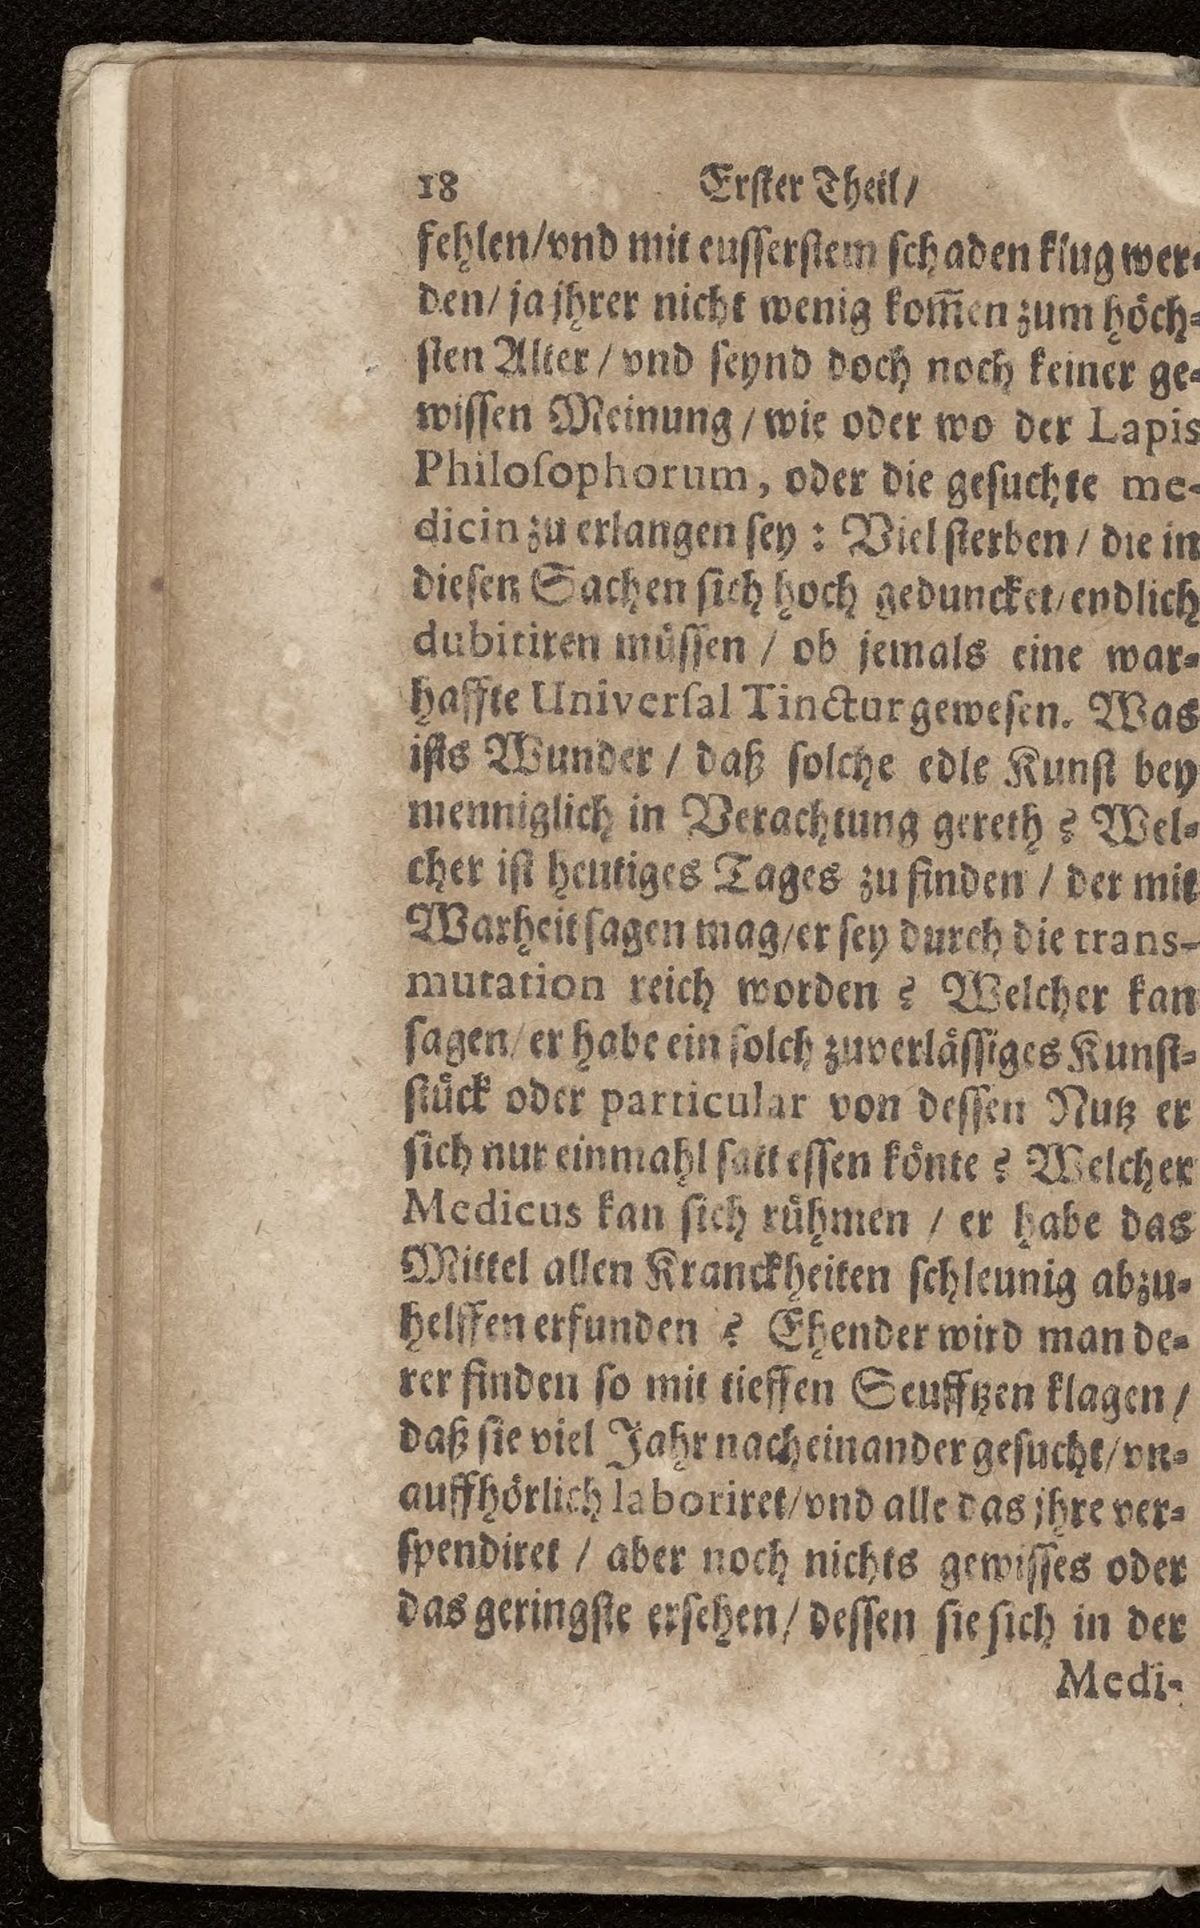 18 Erster Theil/
fehlen/vnd mit eusserstem schaden klug wer-
den/ ja jhrer nicht wenig kom̅en zum höch-
sten Alter / vnd seynd doch noch keiner ge-
wissen Meinung / wie oder wo der Lapis
Philosophorum, oder die gesuchte me-
dicin zu erlangen sey : Viel sterben / die in
diesen Sachen sich hoch geduncket/ endlich
dubitiren müssen / ob jemals eine war-
haffte Universal Tinctur gewesen. Was
ists Wunder / daß solche edle Kunst bey
menniglich in Verachtung gereth ? Wel-
cher ist heutiges Tages zu finden / der mit
Warheit sagen mag/er sey durch die trans-
mutation reich worden ? Welcher kan
sagen/ er habe ein solch zuverlässiges Kunst-
stück oder particular von dessen Nutz er
sich nur einmahl satt essen könte ? Welcher
Medicus kan sich rühmen / er habe das
Mittel allen Kranckheiten schleunig abzu-
helffen erfunden ? Ehender wird man de-
rer finden so mit tieffen Seufftzen klagen /
daß sie viel Jahr nacheinander gesucht/ vn-
auffhörlich laboriret/vnd alle das jhre ver-
spendiret / aber noch nichts gewisses oder
das geringste ersehen/ dessen sie sich in der
Medi-